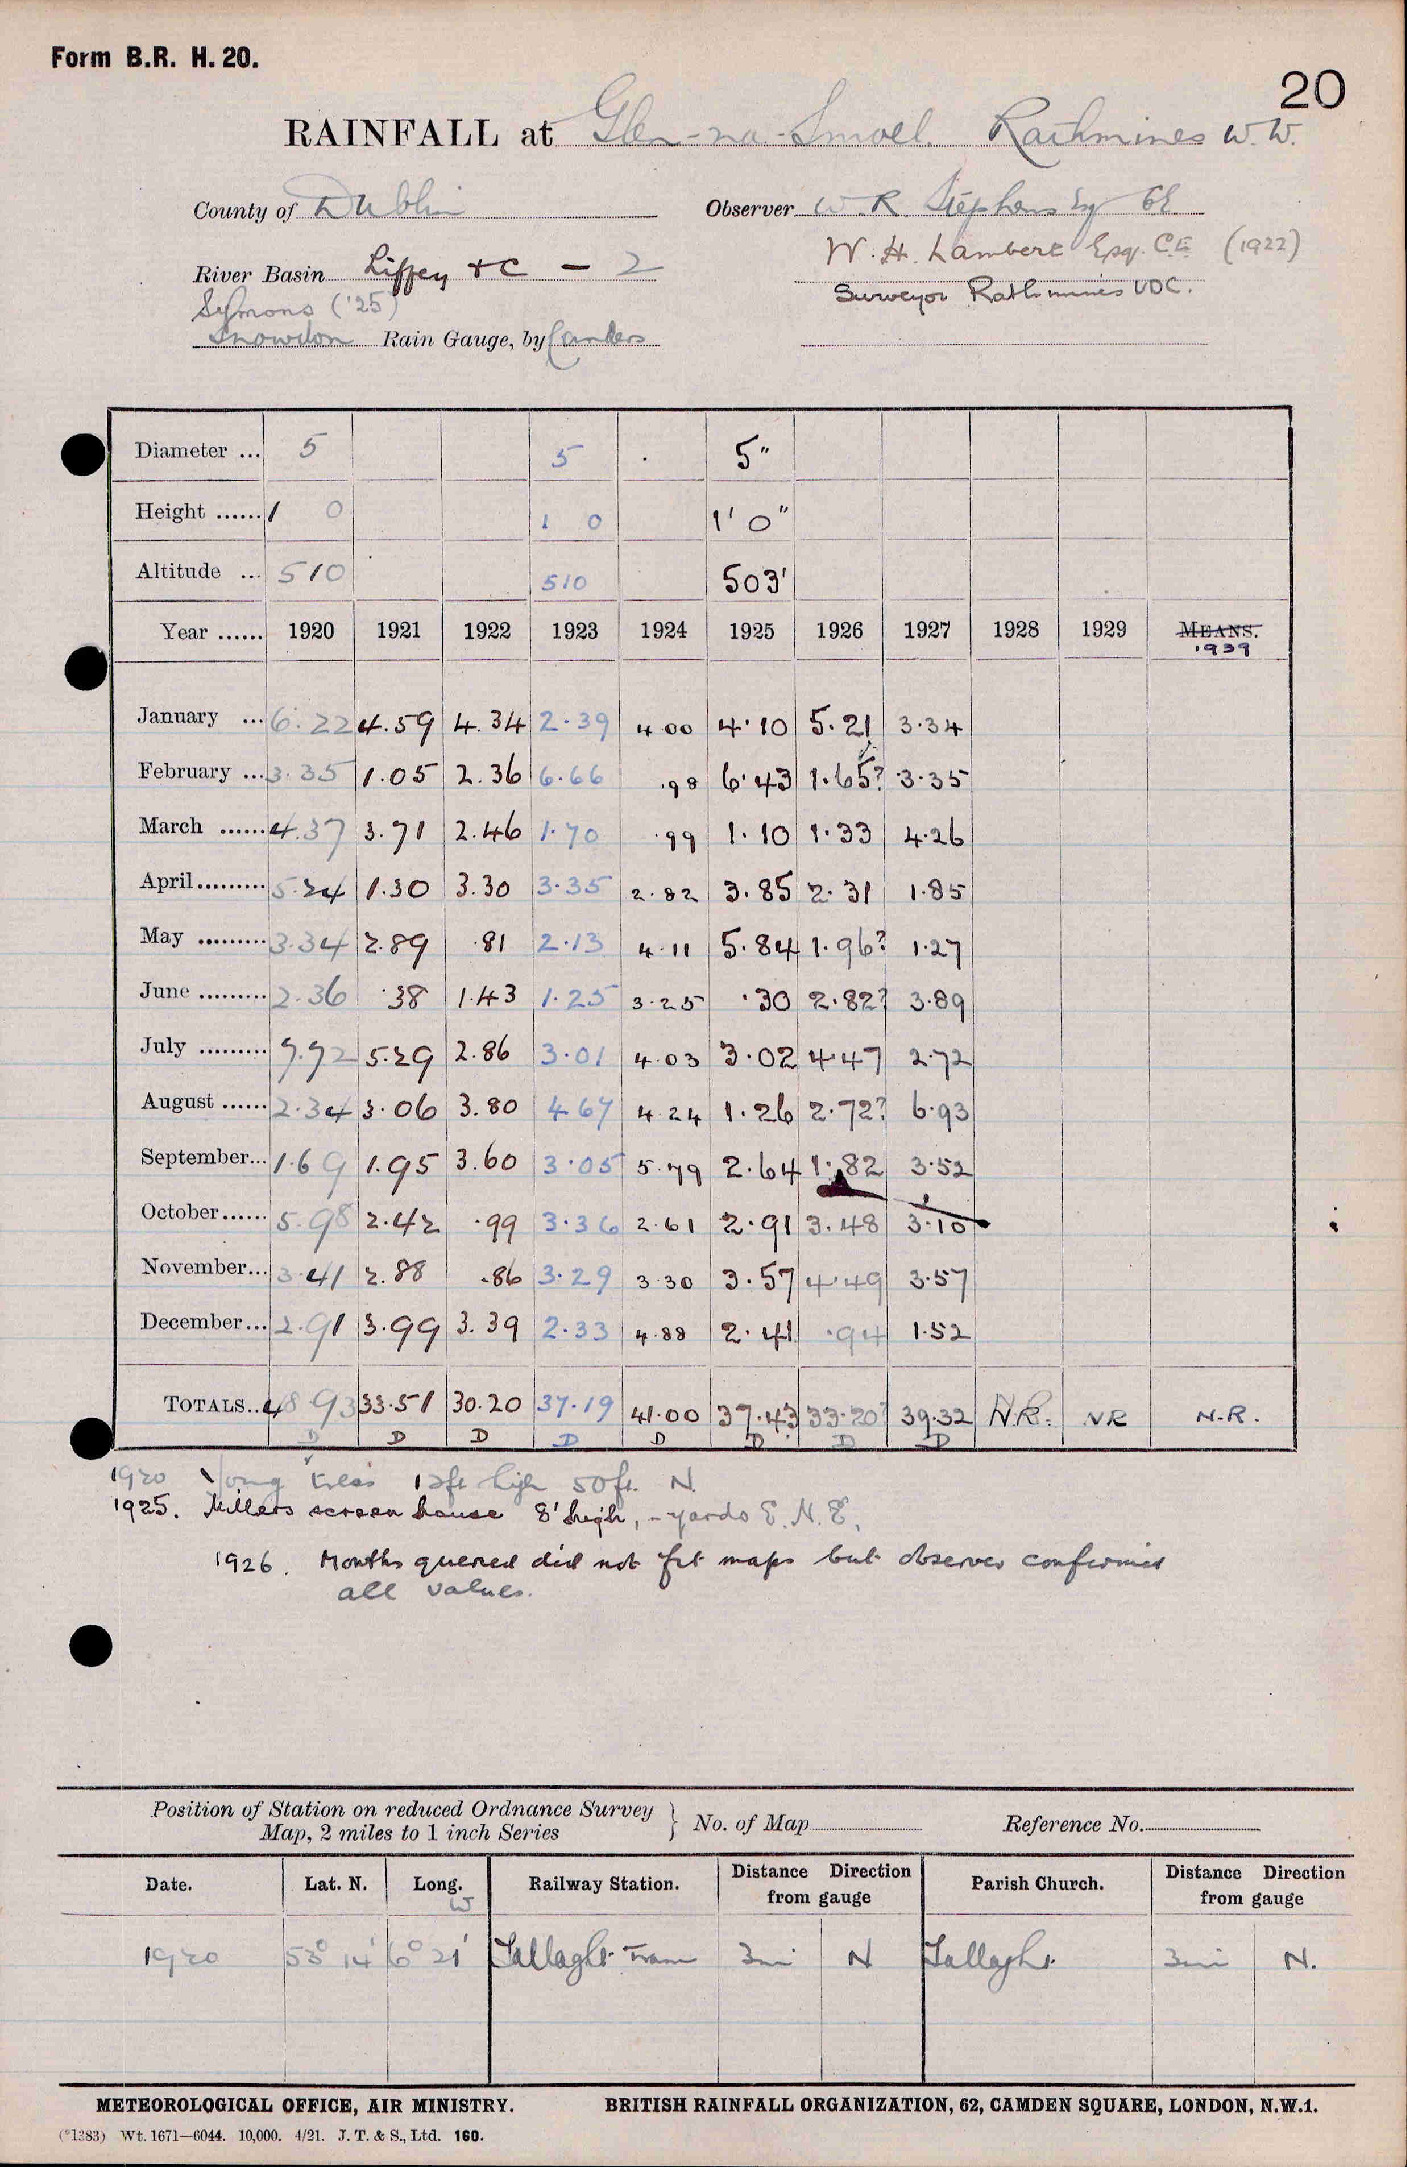 Form B.R. H. 20.
20
RAINFALL at Glen-na-Smoel. Rathmines W.W.
County of Dublin Observer W. R Stephens Esq CE
W. H. Lambert Esq. C.E. (1922)
River Basin Liffey + C — 2
Surveyor Rathmines UDC.
Symons ('25)
Snowdon Rain Gauge, by Casella
Diameter ... 5 5 5"
Height ...... 1 0 1 0 1' 0"
Altitude ... 510 510 503'
Year ...... 1920 1921 1922 1923 1924 1925 1926 1927 1928 1929 MEANS.
1939
January ... 6.22 4.59 4.34 2.39 4.00 4.10 5.21 3.34
February ... 3.35 1.05 2.36 6.66 .98 6.43 1.65? 3.35
March ...... 4.37 3.71 2.46 1.70 .99 1.10 1.33 4.26
April......... 5.24 1.30 3.30 3.35 2.82 3.85 2.31 1.85
May ......... 3.34 2.89 .81 2.13 4.11 5.84 1.96? 1.27
June ......... 2.36 .38 1.43 1.25 3.25 .30 2.82? 3.89
July ......... 7.72 5.29 2.86 3.01 4.03 3.02 4.47 2.72
August ...... 2.34 3.06 3.80 4.67 4.24 1.26 2.72? 6.93
September... 1.69 1.95 3.60 3.05 5.79 2.64 1.82 3.52
October...... 5.98 2.42 .99 3.36 2.61 2.91 3.48 3.10
November... 3.41 2.88 .86 3.29 3.30 3.57 4.49 3.57
December... 2.91 3.99 3.39 2.33 4.88 2.41 .94 1.52
TOTALS.. 48.93 33.51 30.20 37.19 41.00 37.43 33.20? 39.32 N.R. NR N.R.
D D D D D D? D D
1920 Young trees 12ft high 50ft. N.
1925. Killers screen house 8' high, - yards E.N.E.
1926. Months queried did not fit maps but observer confirmed
all values.
Position of Station on reduced Ordnance Survey
Map, 2 miles to 1 inch Series } No. of Map Reference No.
Date. Lat. N. Long. W Railway Station. Distance Direction from gauge Parish Church. Distance Direction from gauge
1920 53° 14' 6° 21' Tallaght Tram 3mi N Tallaght 3mi N.
METEOROLOGICAL OFFICE, AIR MINISTRY. BRITISH RAINFALL ORGANIZATION, 62, CAMDEN SQUARE, LONDON, N.W.1.
(*1383) Wt. 1671—6044. 10,000. 4/21. J. T. & S., Ltd. 160.